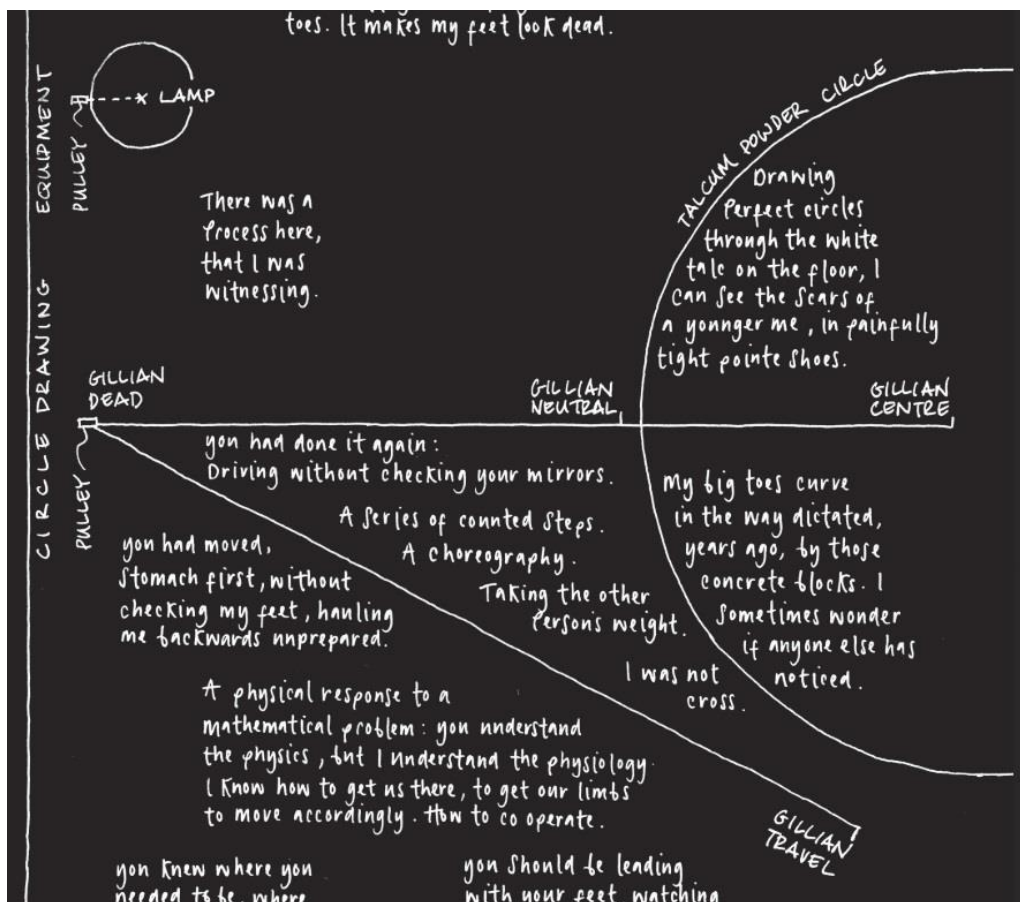 toes. It makes my feet look dead.
CIRCLE DRAWING EQUIPMENT
PULLEY
LAMP
There was a
process here,
that I was
witnessing.
TALCUM POWDER CIRCLE
Drawing
perfect circles
through the white
talc on the floor, I
can see the scars of
a younger me, in painfully
tight pointe shoes.
GILLIAN
DEAD
GILLIAN
NEUTRAL
GILLIAN
CENTRE
PULLEY
you had done it again:
Driving without checking your mirrors.
A series of counted steps.
A choreography.
Taking the other
person's weight.
I was not
cross.
you had moved,
stomach first, without
checking my feet, hauling
me backwards unprepared.
My big toes curve
in the way dictated,
years ago, by those
concrete blocks. I
sometimes wonder
if anyone else has
noticed.
A physical response to a
mathematical problem: you understand
the physics, but I understand the physiology.
I know how to get us there, to get our limbs
to move accordingly. How to co operate.
GILLIAN
TRAVEL
you knew where you
needed to be, where
you should be leading
with your feet, watching